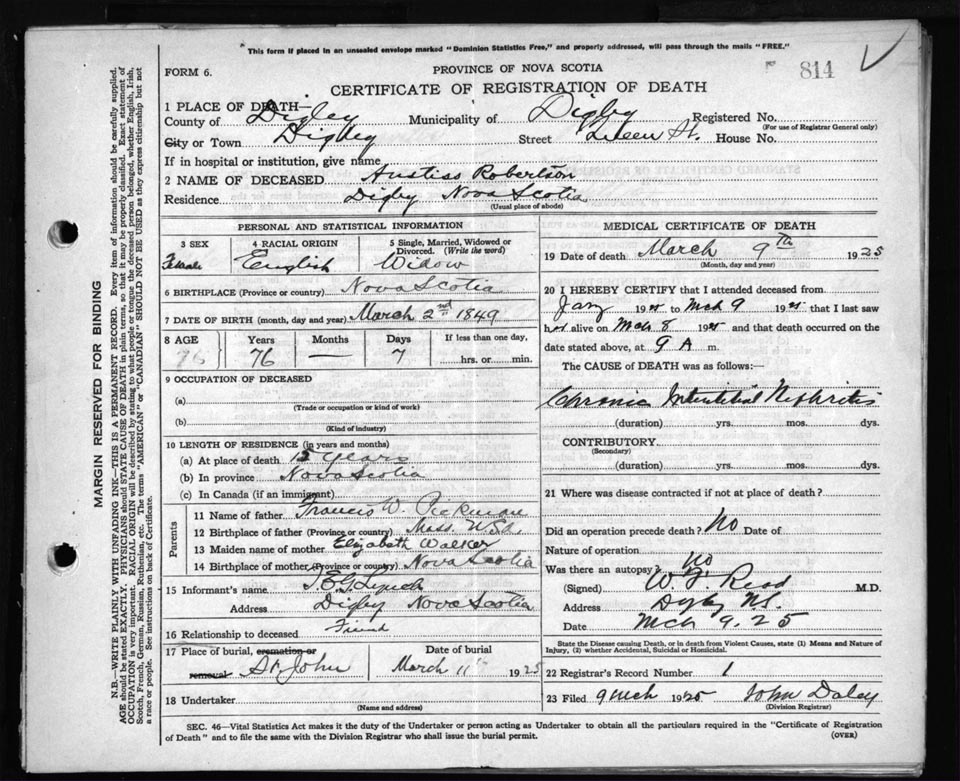 This form if placed in an unsealed envelope marked "Dominion Statistics Free," and properly addressed, will pass through the mails "FREE."
814
FORM 6.
PROVINCE OF NOVA SCOTIA
CERTIFICATE OF REGISTRATION OF DEATH
1 PLACE OF DEATH—
County of Digby Municipality of Digby Registered No.
(For use of Registrar General only)
City or Town Digby Street Queen St. House No.
If in hospital or institution, give name
2 NAME OF DECEASED Robertson
Residence Digby Nova Scotia
(Usual place of abode)
PERSONAL AND STATISTICAL INFORMATION
3 SEX 4 RACIAL ORIGIN 5 Single, Married, Widowed or Divorced. (Write the word)
Female English Widow
6 BIRTHPLACE (Province or country) Nova Scotia
7 DATE OF BIRTH (month, day and year) March 2nd 1849
8 AGE Years Months Days If less than one day,
76 76 — 7 hrs. or min.
9 OCCUPATION OF DECEASED
(a)
(Trade or occupation or kind of work)
(b)
(Kind of industry)
10 LENGTH OF RESIDENCE (in years and months)
(a) At place of death 15 years
(b) In province Nova Scotia
(c) In Canada (if an immigrant)
Parents
11 Name of father Francis W. Pickman
12 Birthplace of father (Province or country) Mass. USA
13 Maiden name of mother Elizabeth Walker
14 Birthplace of mother (Province or country) Nova Scotia
15 Informant's name T.E.G. Lynch
Address Digby Nova Scotia
16 Relationship to deceased Friend
17 Place of burial, cremation or removal Date of burial
St John March 11th 1925
18 Undertaker
(Name and address)
MEDICAL CERTIFICATE OF DEATH
19 Date of death March 9th 1925
(Month, day and year)
20 I HEREBY CERTIFY that I attended deceased from
Jany 1925 to Mch 9 1925 that I last saw
her alive on Mch 8 1925 and that death occurred on the
date stated above, at 9 A m.
The CAUSE of DEATH was as follows:—
Chronic Interstitial Nephritis
(duration) yrs. mos. dys.
CONTRIBUTORY
(Secondary)
(duration) yrs. mos. dys.
21 Where was disease contracted if not at place of death?
Did an operation precede death? No Date of
Nature of operation
Was there an autopsy? No
(Signed) W. F. Read M.D.
Address Digby N.S.
Date Mch 9. 25
State the Disease causing Death, or in death from Violent Causes, state (1) Means and Nature of
Injury, (2) whether Accidental, Suicidal or Homicidal.
22 Registrar's Record Number 1
23 Filed 9 Mch 1925 John Daley
(Division Registrar)
SEC. 46—Vital Statistics Act makes it the duty of the Undertaker or person acting as Undertaker to obtain all the particulars required in the "Certificate of Registration
of Death" and to file the same with the Division Registrar who shall issue the burial permit. (OVER)
MARGIN RESERVED FOR BINDING
N.B.—WRITE PLAINLY WITH UNFADING INK—THIS IS A PERMANENT RECORD. Every item of information should be carefully supplied.
AGE should be stated EXACTLY. PHYSICIANS should STATE CAUSE OF DEATH in plain terms, so that it may be properly classified. Exact statement of
OCCUPATION is very important. RACIAL ORIGIN will be described by stating to what people or tongue the deceased person belonged, whether English, Irish,
Scotch, French, German, Russian, Ruthenian, etc. The terms "AMERICAN" or "CANADIAN" SHOULD NOT BE USED as they express citizenship but not
a race or people. See instructions on back of Certificate.